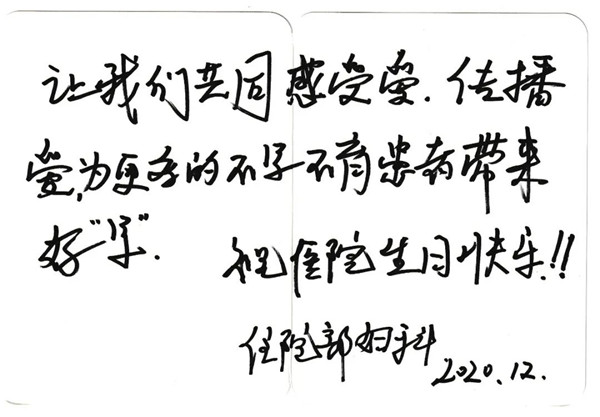 让我们共同感受爱.传播
爱,为更多的不孕不育患者带来
好"孕".
祝医院生日快乐!!
住院部妇科
2020.12.